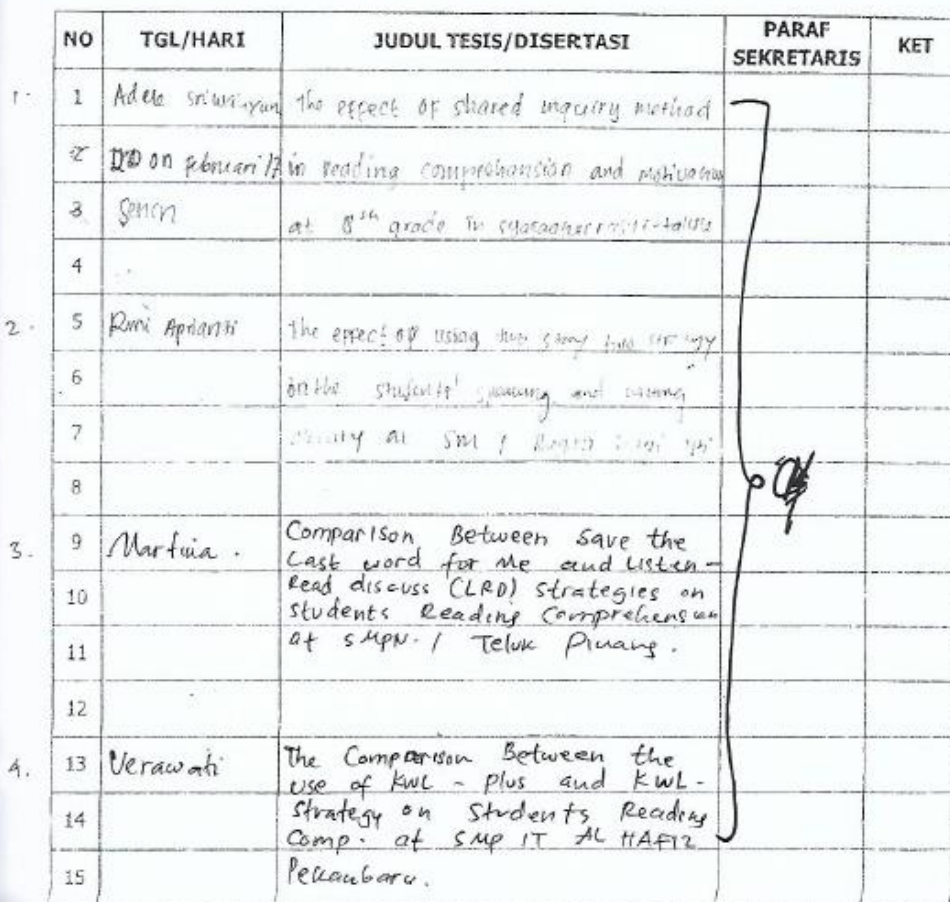 NO TGL/HARI JUDUL TESIS/DISERTASI PARAF SEKRETARIS KET
1. 1 Adele The effect of shared inquiry method
2 on Februari 17 in reading comprehension and motivation
3 Senin at 8th grade in
4
2. 5 Rini Aprianti The effect of using two stay two
6 on the students' speaking and
7 at SM 1
8
3. 9 Martina. Comparison Between Save the
Last word for Me and Listen-
10 Read discuss (LRD) strategies on
students Reading Comprehension
11 at SMPN. 1 Teluk Pinang.
12
4. 13 Verawati The Comparison Between the
use of KWL - Plus and KWL-
14 Strategy on Students Reading
Comp. at SMP IT AL HAFIZ
15 Pekanbaru.